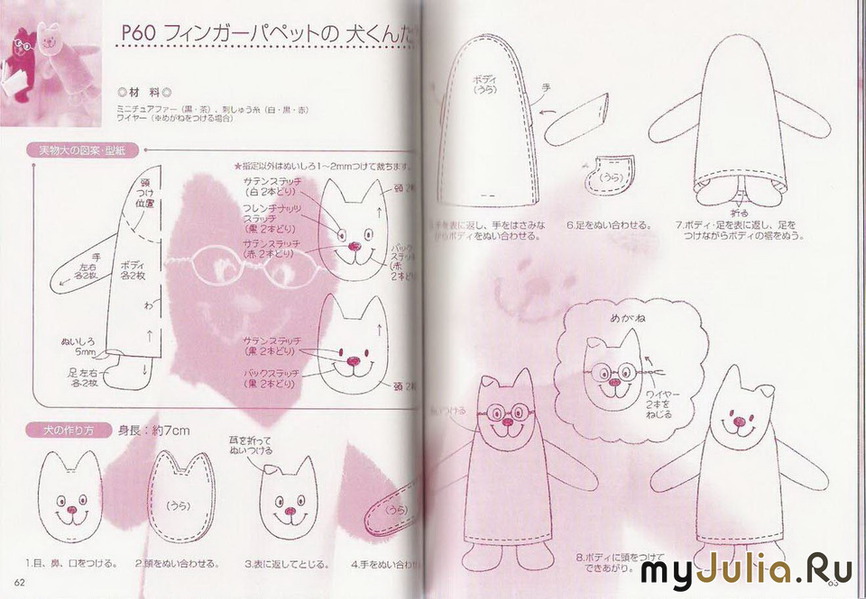 P60 フィンガーパペットの 犬くんだ
◎材 料◎
ミニチュアファー（黒・茶）、刺しゅう糸（白・黒・赤）
ワイヤー（※めがねをつける場合）
実物大の図案・型紙
★指定以外はぬいしろ1〜2mmつけて裁ちます。
頭
つけ
位置
手
左右
各2枚
ボディ
各2枚
わ
ぬいしろ
5mm
足 左右
各2枚
サテンステッチ
（白 2本どり）
フレンチナッツ
ステッチ
（黒 2本どり）
サテンステッチ
（赤 2本どり）
頭 2
バック
ステッ
（赤
2本ど
サテンステッチ
（黒 2本どり）
バックステッチ
（黒 2本どり）
頭 2
犬の作り方
身長：約7cm
耳を折って
ぬいつける
（うら）
（うら）
1.目、鼻、口をつける。
2.頭をぬい合わせる。
3.表に返してとじる。
4.手をぬい合わ
62
ボディ
（うら）
手
（うら）
折る
を表に返し、手をはさみな
がらボディをぬい合わせる。
6.足をぬい合わせる。
7.ボディ・足を表に返し、足を
つけながらボディの裾をぬう。
めがね
ワイヤー
2本を
ねじる
ぬいつける
8.ボディに頭をつけて
できあがり。
63
myJulia.Ru